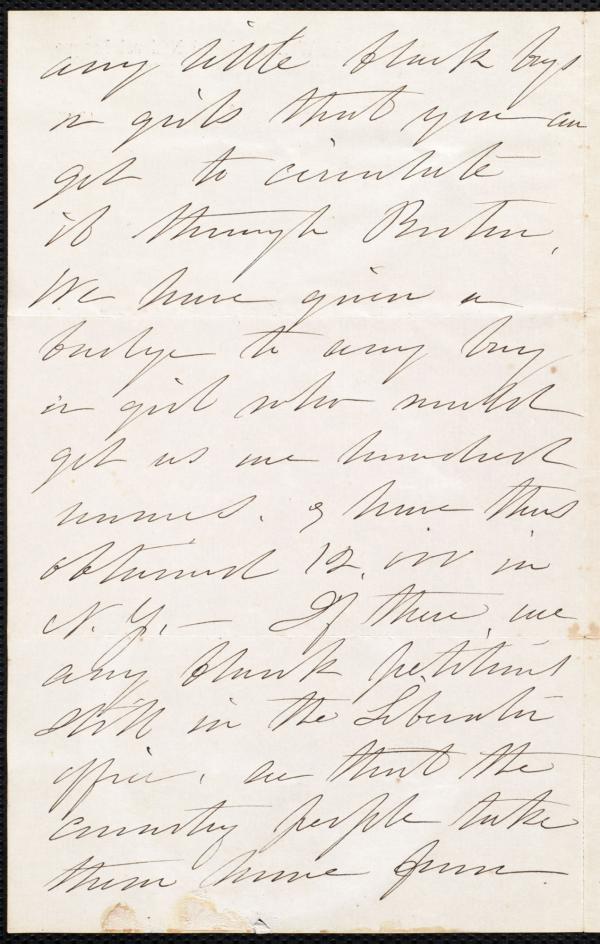 any little black boys
or girls that you can
get to circulate
it through Boston,
We have given a
badge to any boy
or girl who would
get us one hundred
names. & have thus
obtained 12,000 in
N. Y. — If there are
any blank petitions
still in the Liberator
office, see that the
country people take
them home from